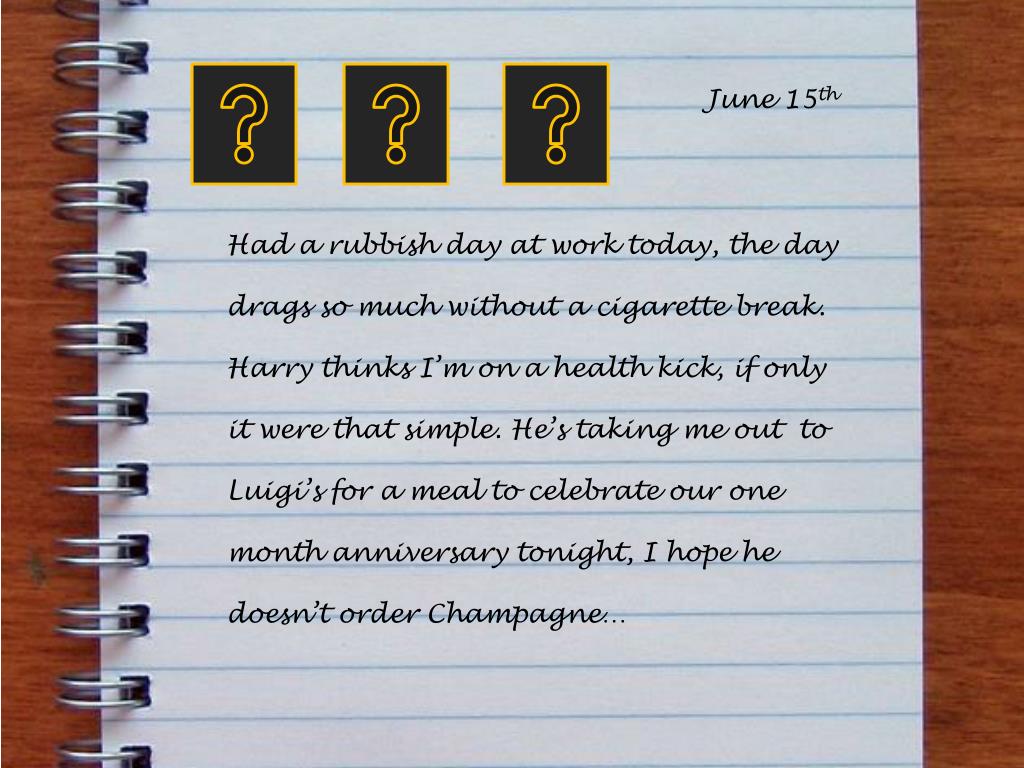 ? ? ?
June 15th
Had a rubbish day at work today, the day
drags so much without a cigarette break.
Harry thinks I'm on a health kick, if only
it were that simple. He's taking me out to
Luigi's for a meal to celebrate our one
month anniversary tonight, I hope he
doesn't order Champagne…